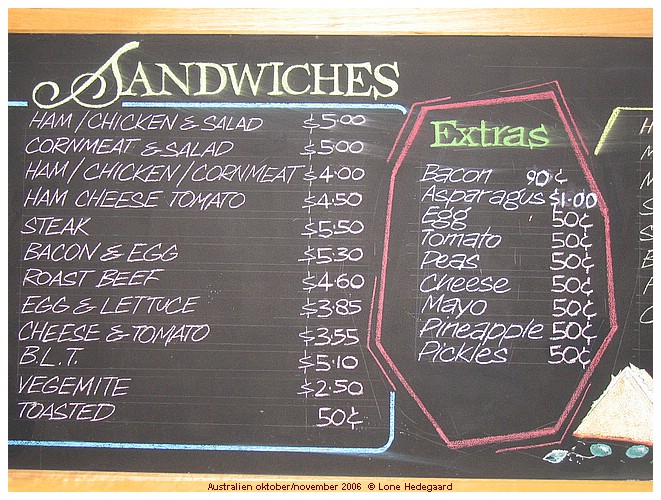 SANDWICHES
HAM/CHICKEN & SALAD $5.00
CORNMEAT & SALAD $5.00
HAM/CHICKEN/CORNMEAT $4.00
HAM CHEESE TOMATO $4.50
STEAK $5.50
BACON & EGG $5.30
ROAST BEEF $4.60
EGG & LETTUCE $3.85
CHEESE & TOMATO $3.55
B.L.T. $5.10
VEGEMITE $2.50
TOASTED 50¢
Extras
Bacon 90¢
Asparagus $1.00
Egg 50¢
Tomato 50¢
Peas 50¢
Cheese 50¢
Mayo 50¢
Pineapple 50¢
Pickles 50¢
Australien oktober/november 2006 © Lone Hedegaard